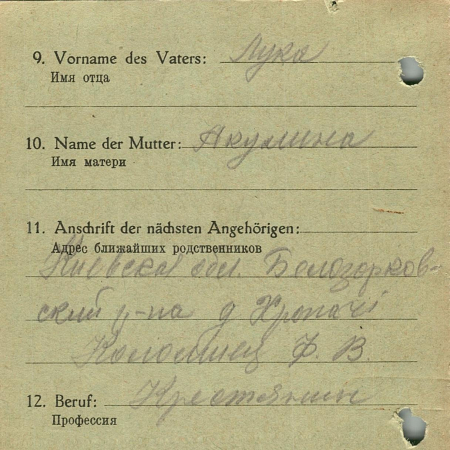 9. Vorname des Vaters: Лука
Имя отца
10. Name der Mutter: Акулина
Имя матери
11. Anschrift der nächsten Angehörigen:
Адрес ближайших родственников
Киевская обл. Белозерков-
ский р-на д Хропачі
Коломиец Ф. В.
12. Beruf: Крестянин
Профессия